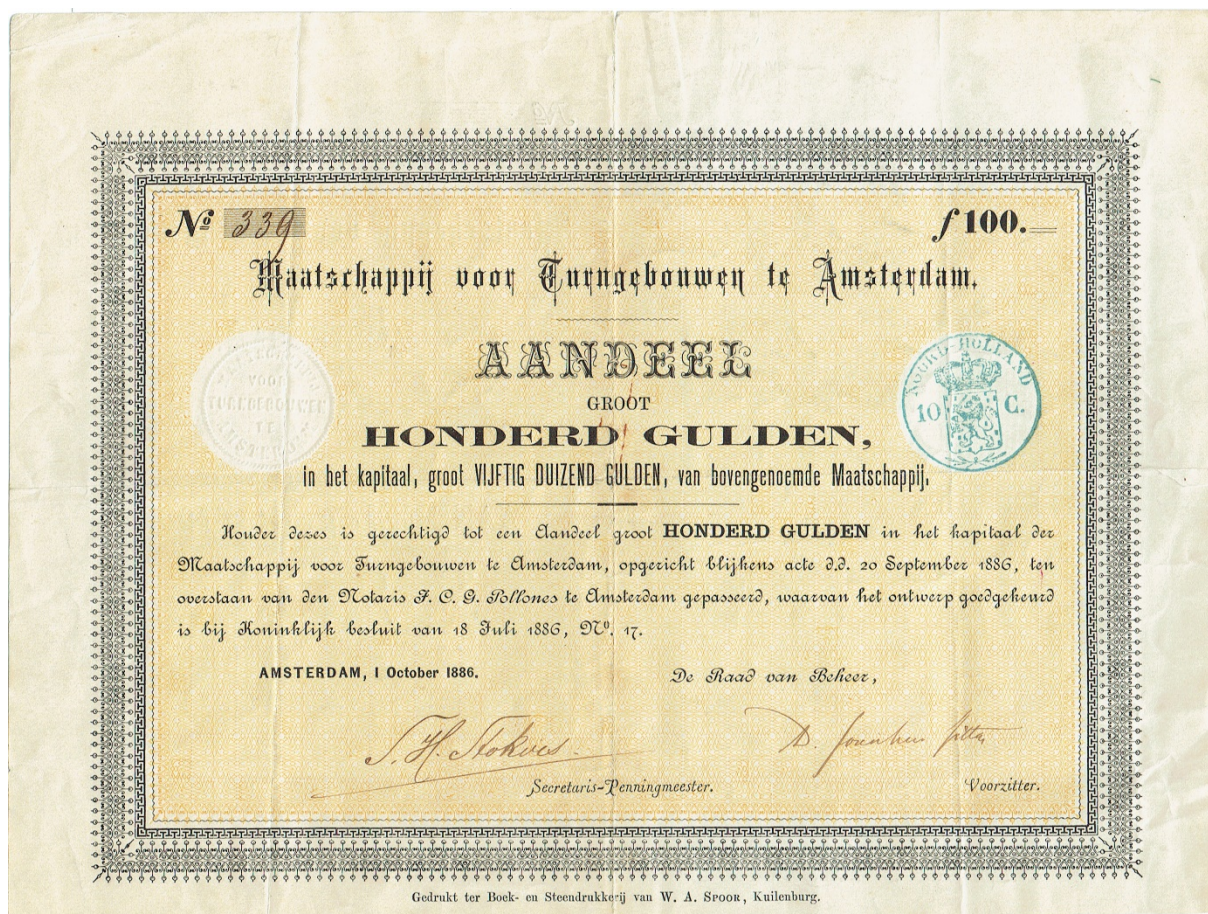 Nº 339
ƒ 100.
Maatschappij voor Turngebouwen te Amsterdam.
AANDEEL
GROOT
HONDERD GULDEN,
in het kapitaal, groot VIJFTIG DUIZEND GULDEN, van bovengenoemde Maatschappij.
NOORD-HOLLAND
10 C.
Houder dezes is gerechtigd tot een Aandeel groot HONDERD GULDEN in het kapitaal der
Maatschappij voor Turngebouwen te Amsterdam, opgericht blijkens acte d.d. 20 September 1886, ten
overstaan van den Notaris J. C. G. Pollones te Amsterdam gepasseerd, waarvan het ontwerp goedgekeurd
is bij Koninklijk besluit van 18 Juli 1886, Nº. 17.
AMSTERDAM, 1 October 1886.
De Raad van Beheer,
S. H. Stokvis
Secretaris-Penningmeester.
Voorzitter.
Gedrukt ter Boek- en Steendrukkerij van W. A. SPOOR, Kuilenburg.